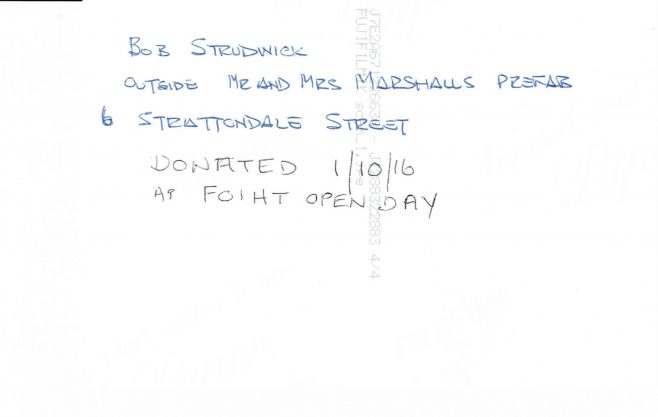 BOB STRUDWICK
OUTSIDE MR AND MRS MARSHALLS PREFAB
6 STRATTONDALE STREET
DONATED 1/10/16
AT FOIHT OPEN DAY
FUJIFILM
4/4